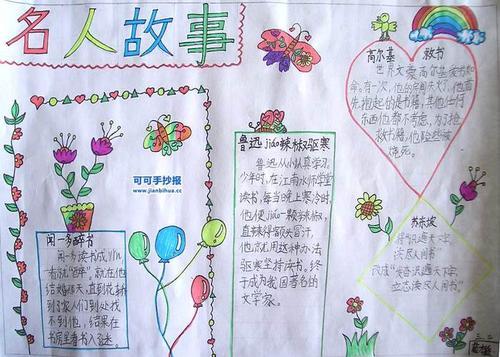 名人故事
高尔基 救书
世界文豪高尔基爱书如
命。有一次，他的房间失火了，他首
先抱起的是书籍，其他的任何
东西他都不考虑，为了抢
救书籍，他险些被
烧死。
鲁迅jiao辣椒驱寒
鲁迅从小认真学习，
少年时，在江南水师学堂
读书，每当晚上寒冷时，
他便jiao一颗辣椒，
直辣得额头冒汗，
他就用这种办法
驱寒坚持读书。终
于成为我国著名的
文学家。
可可手抄报
www.jianbihua.cc
闻一多醉书
闻一多读书成yǐn，
一看就"醉"，就在他
结婚那天，直到花轿
到了家人们到处找
不到他，结果在
书房里看书入了迷。
苏东坡
"识遍天下字，
读尽人间书"
改成"发奋识遍天下字，
立志读尽人间书"